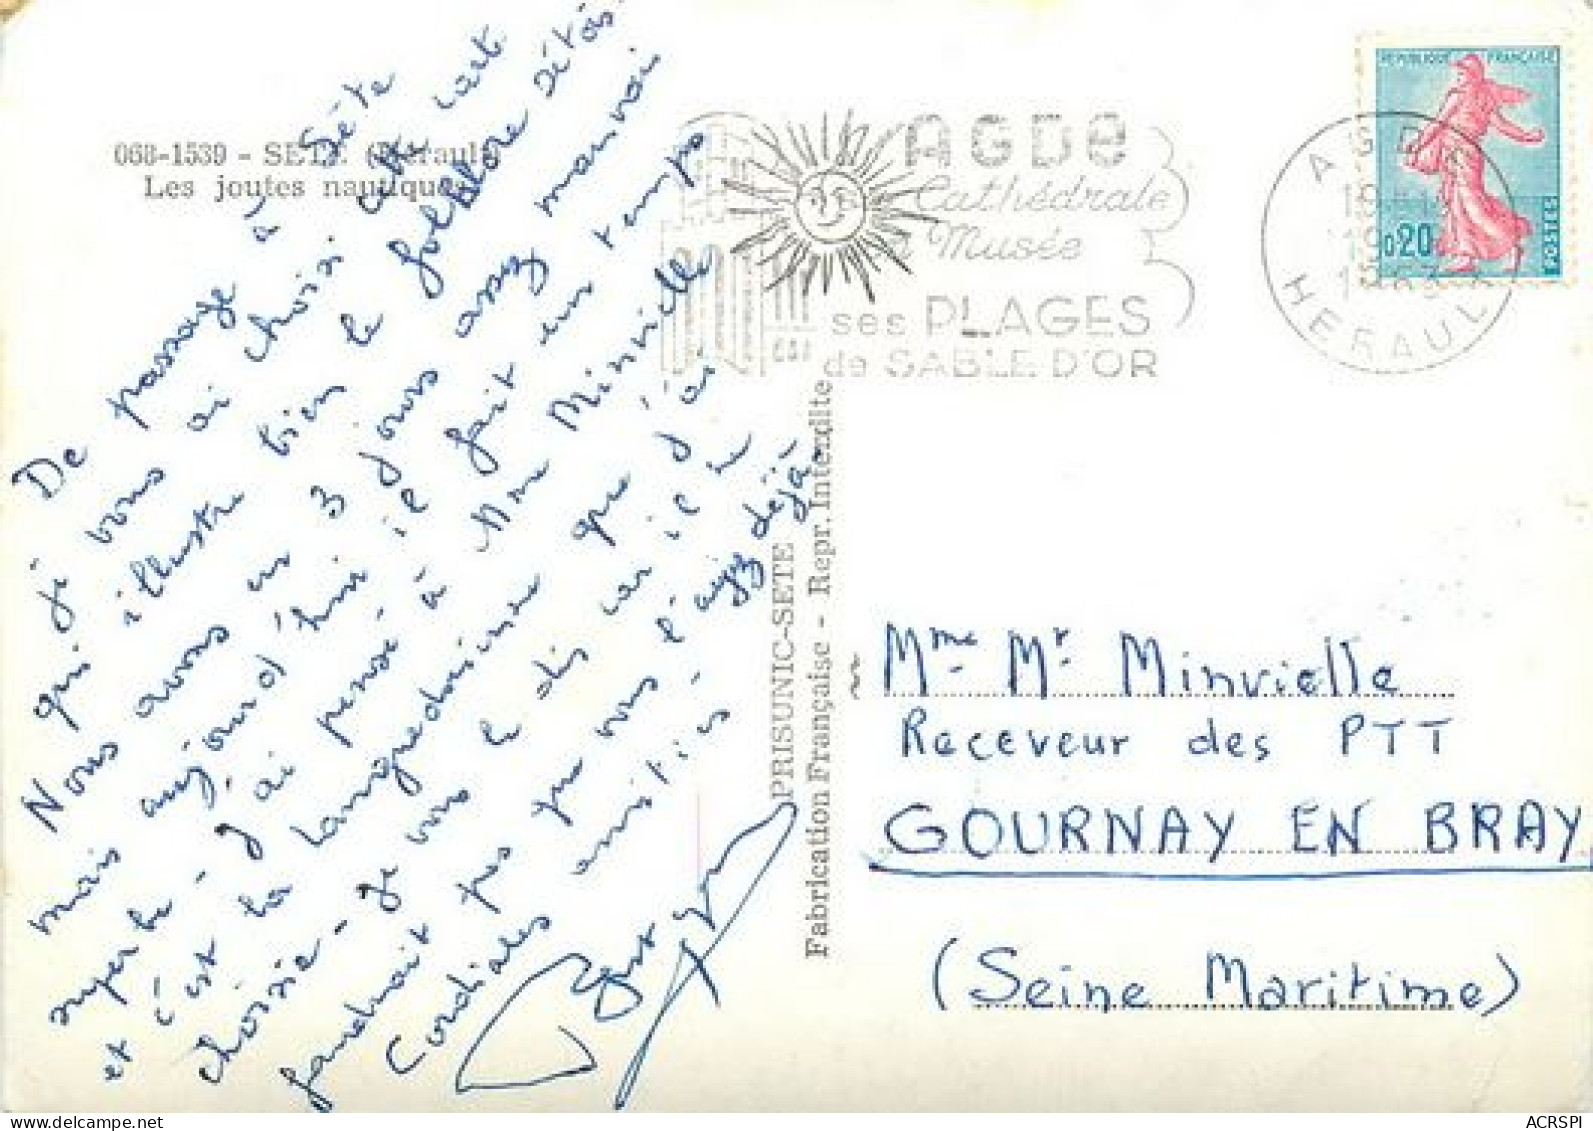 068-1539 - SETE (Hérault)
Les joutes nautiques
De passage à Sète
je vous ai choisi cette carte
qui illustre bien le folklore sétois
Nous avons eu 3 jours assez mauvais
mais aujourd'hui il fait un temps
superbe - J'ai pensé à Mme Minvielle
et c'est la languedocienne que j'ai
choisie - Je vous le dis car il ne
faudrait pas que vous l'ayez déjà -
Cordiales amitiés -
PRISUNIC-SETE
Fabrication Française - Repr. Interdite
AGDE
Cathédrale
Musée
ses PLAGES
de SABLE D'OR
AGDE
HERAULT
REPUBLIQUE FRANÇAISE
0,20
POSTES
Mme Mr Minvielle
Receveur des PTT
GOURNAY EN BRAY
(Seine Maritime)
ACRSPI